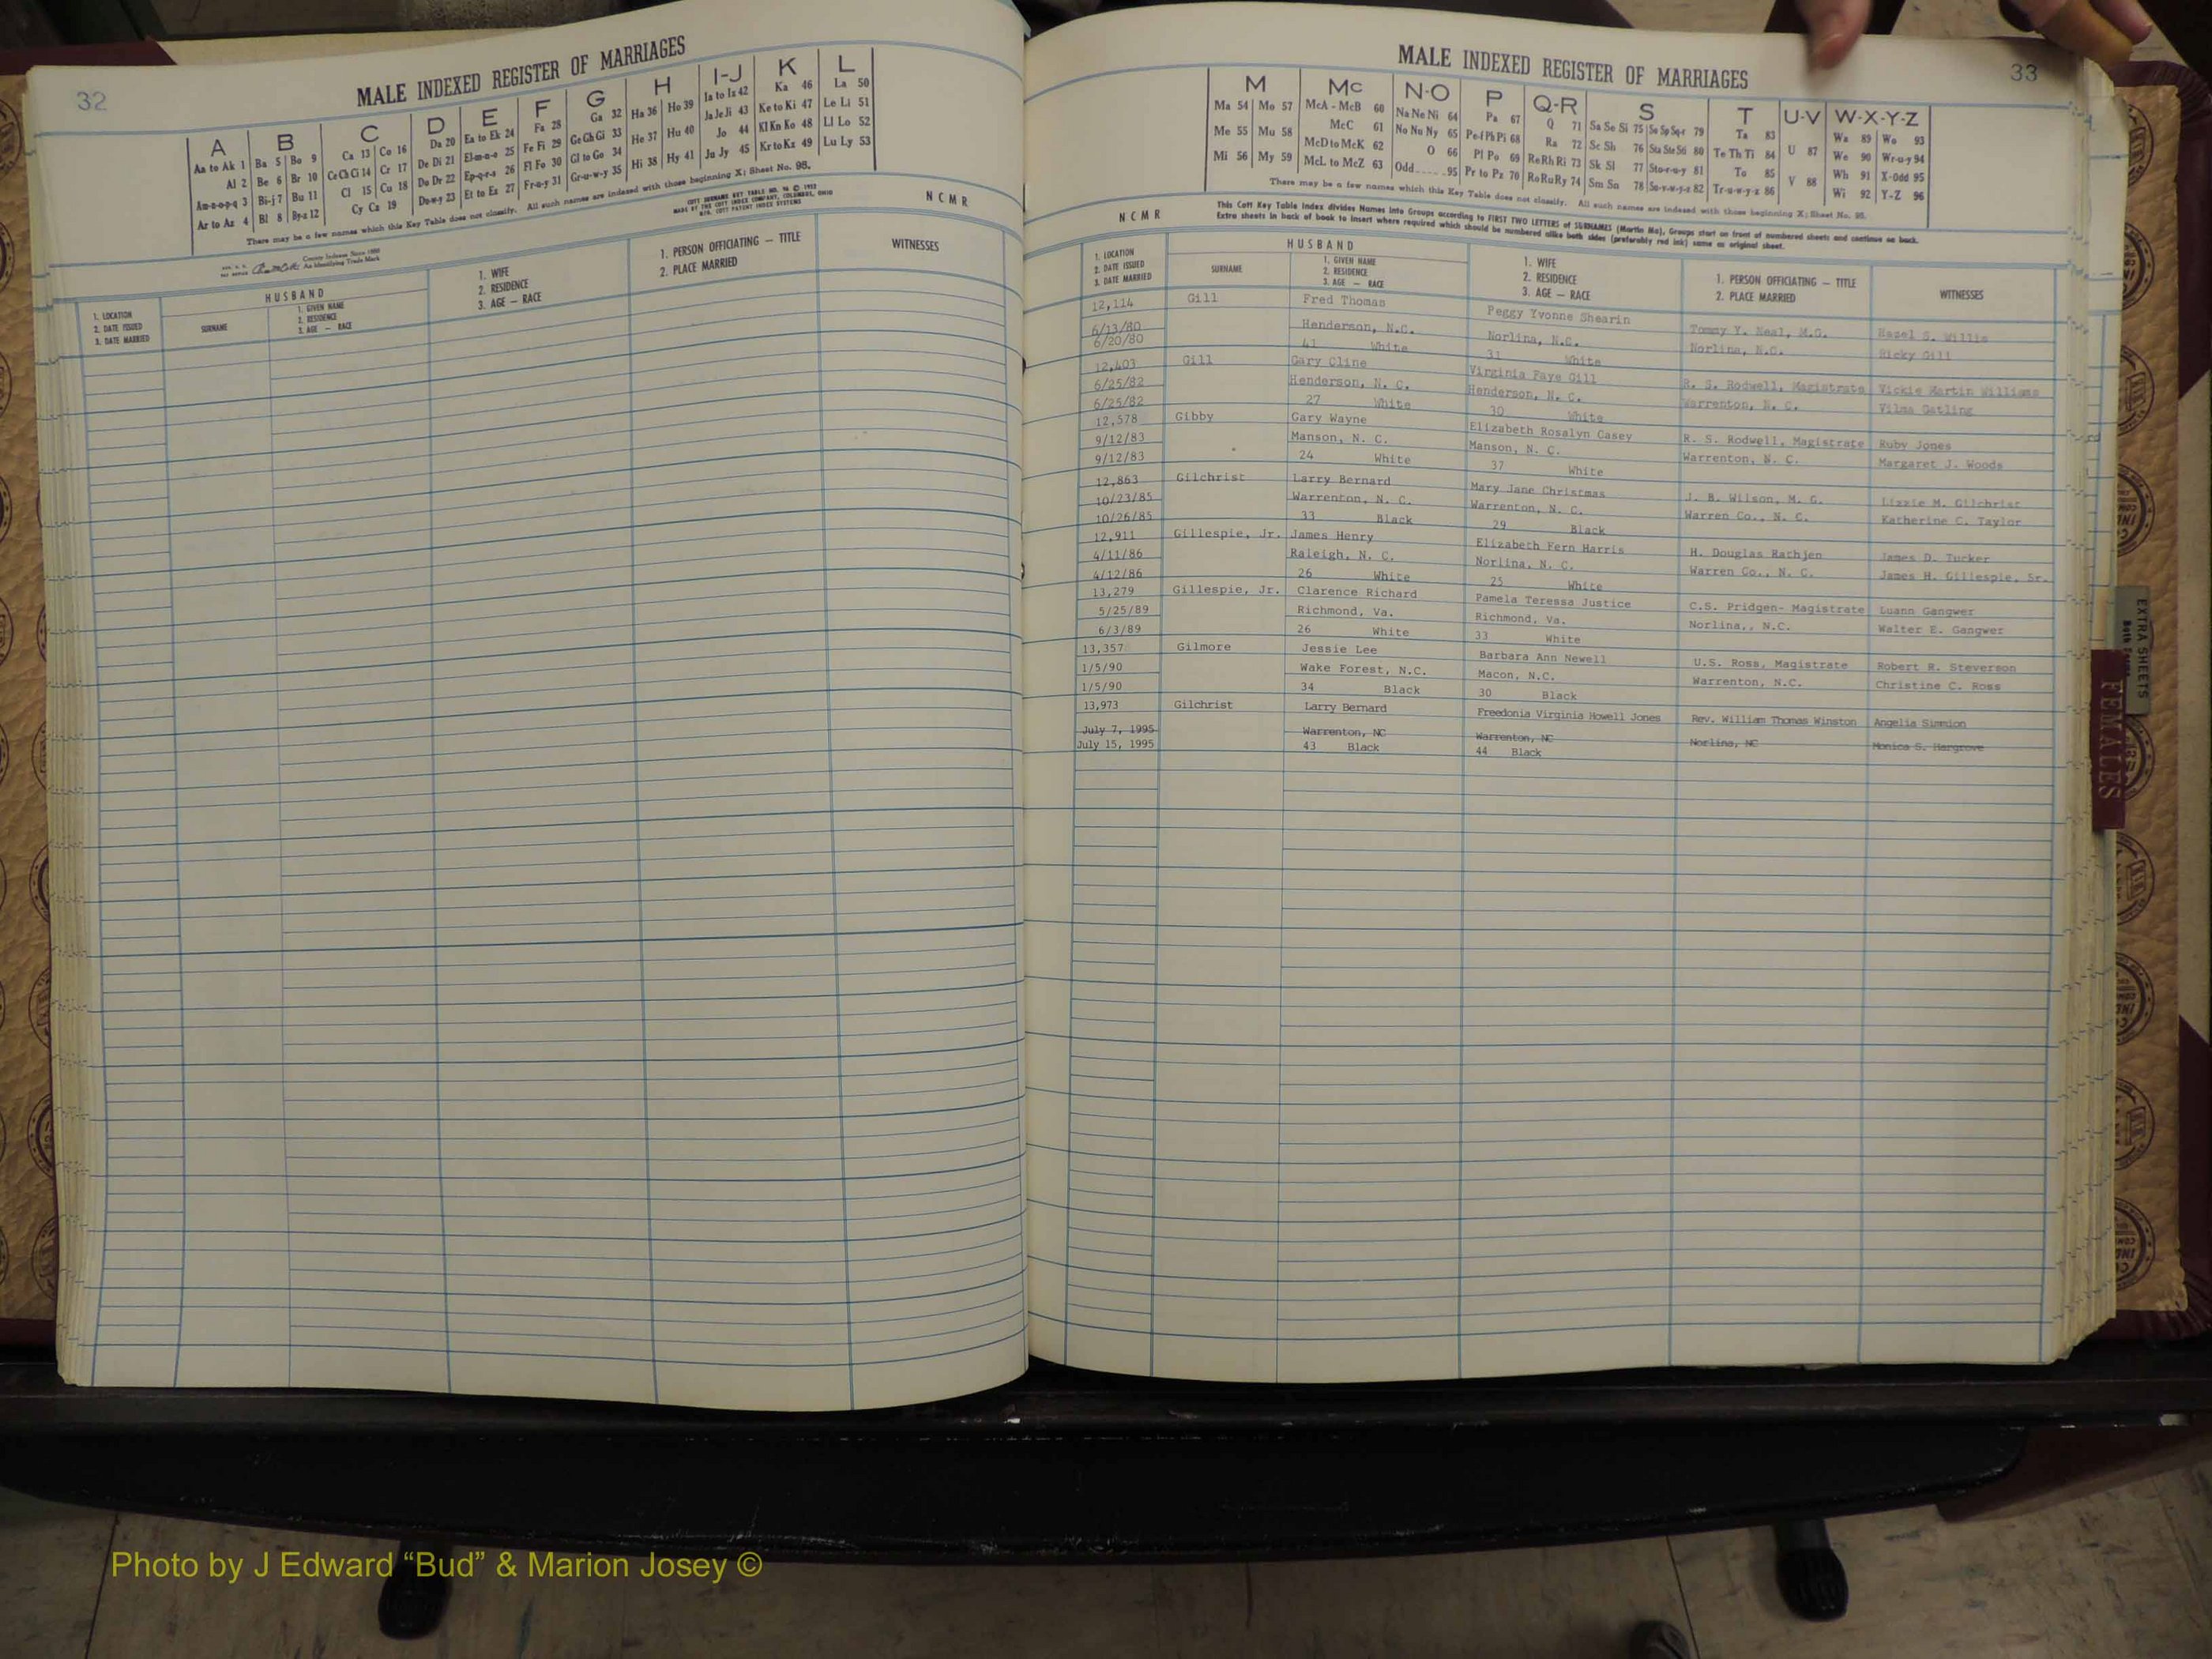 32
MALE INDEXED REGISTER OF MARRIAGES
A B C D E F G H I-J K L
Aa to Ak 1 Ba 5 Bo 9 Ca 13 Co 16 Da 20 Ea to Ek 24 Fa 28 Ga 32 Ha 36 Ho 39 Ia to Iz 42 Ka 46 La 50
Al 2 Be 6 Br 10 Ce Ch Ci 14 Cr 17 De Di 21 El-m-n-o 25 Fe Fi 29 Ge Gh Gi 33 He 37 Hu 40 Ja Je Ji 43 Ke to Ki 47 Le Li 51
Am-n-o-p-q 3 Bi-j 7 Bu 11 Cl 15 Cu 18 Do Dr 22 Ep-q-r-s 26 Fl Fo 30 Gl to Go 34 Hi 38 Hy 41 Jo 44 Kl Kn Ko 48 Ll Lo 52
Ar to Az 4 Bl 8 By-z 12 Cy Cz 19 Du-w-y 23 Et to Ez 27 Fr-u-y 31 Gr-u-w-y 35 Ju Jy 45 Kr to Kz 49 Lu Ly 53
There may be a few names which this Key Table does not classify. All such names are indexed with those beginning X; Sheet No. 95.
N C M R
County Indexes Since 1888
An Identifying Trade Mark
COTT SURNAME KEY TABLE NO. 96 © 1952
MADE BY THE COTT INDEX COMPANY, COLUMBUS, OHIO
1. LOCATION
2. DATE ISSUED
3. DATE MARRIED
HUSBAND
SURNAME
1. GIVEN NAME
2. RESIDENCE
3. AGE — RACE
1. WIFE
2. RESIDENCE
3. AGE — RACE
1. PERSON OFFICIATING — TITLE
2. PLACE MARRIED
WITNESSES
MALE INDEXED REGISTER OF MARRIAGES
33
M Mc N-O P Q-R S T U-V W-X-Y-Z
Ma 54 Mo 57 McA - McB 60 Na Ne Ni 64 Pa 67 Q 71 Sa Se Si 75 So Sp Sq-r 79 Ta 83 Wa 89 Wo 93
Me 55 Mu 58 McC 61 No Nu Ny 65 Pe-f Ph Pi 68 Ra 72 Sc Sh 76 Sta Ste Sti 80 Te Th Ti 84 U 87 We 90 Wr-u-y 94
Mi 56 My 59 McD to McK 62 O 66 Pl Po 69 Re Rh Ri 73 Sk Sl 77 Sto-r-u-y 81 To 85 V 88 Wh 91 X-Odd 95
McL to McZ 63 Odd.....95 Pr to Pz 70 Ro Ru Ry 74 Sm Sn 78 Su-v-w-y-z 82 Tr-u-w-y-z 86 Wi 92 Y-Z 96
There may be a few names which this Key Table does not classify. All such names are indexed with those beginning X; Sheet No. 95.
This Cott Key Table Index divides Names into Groups according to FIRST TWO LETTERS of SURNAMES (Martin Ma). Groups start on front of numbered sheets and continue on back.
Extra sheets in back of book to insert where required which should be numbered alike both sides (preferably red ink) same as original sheet.
N C M R
1. LOCATION
2. DATE ISSUED
3. DATE MARRIED
HUSBAND
SURNAME
1. GIVEN NAME
2. RESIDENCE
3. AGE — RACE
1. WIFE
2. RESIDENCE
3. AGE — RACE
1. PERSON OFFICIATING — TITLE
2. PLACE MARRIED
WITNESSES
12,114 Gill Fred Thomas Peggy Yvonne Shearin Tommy Y. Neal, M.G. Hazel S. Willis
6/13/80 Henderson, N.C. Norlina, N.C. Norlina, N.C. Ricky Gill
6/20/80 41 White 31 White
12,403 Gill Gary Cline Virginia Faye Gill R. S. Rodwell, Magistrate Vickie Martin Williams
6/25/82 Henderson, N. C. Henderson, N. C. Warrenton, N. C. Vilma Gatling
6/25/82 27 White 30 White
12,578 Gibby Gary Wayne Elizabeth Rosalyn Casey R. S. Rodwell, Magistrate Ruby Jones
9/12/83 Manson, N. C. Manson, N. C. Warrenton, N. C. Margaret J. Woods
9/12/83 24 White 37 White
12,863 Gilchrist Larry Bernard Mary Jane Christmas J. B. Wilson, M. G. Lizzie M. Gilchrist
10/23/85 Warrenton, N. C. Warrenton, N. C. Warren Co., N. C. Katherine C. Taylor
10/26/85 33 Black 29 Black
12,911 Gillespie, Jr. James Henry Elizabeth Fern Harris H. Douglas Rathjen James D. Tucker
4/11/86 Raleigh, N. C. Norlina, N. C. Warren Co., N. C. James H. Gillespie, Sr.
4/12/86 26 White 25 White
13,279 Gillespie, Jr. Clarence Richard Pamela Teressa Justice C.S. Pridgen- Magistrate Luann Gangwer
5/25/89 Richmond, Va. Richmond, Va. Norlina,. N.C. Walter E. Gangwer
6/3/89 26 White 33 White
13,357 Gilmore Jessie Lee Barbara Ann Newell U.S. Ross, Magistrate Robert R. Steverson
1/5/90 Wake Forest, N.C. Macon, N.C. Warrenton, N.C. Christine C. Ross
1/5/90 34 Black 30 Black
13,973 Gilchrist Larry Bernard Freedonia Virginia Howell Jones Rev. William Thomas Winston Angelia Simmion
July 7, 1995 Warrenton, NC Warrenton, NC Norlina, NC Monica S. Hargrove
July 15, 1995 43 Black 44 Black
EXTRA SHEETS
FEMALES
Photo by J Edward “Bud” & Marion Josey ©